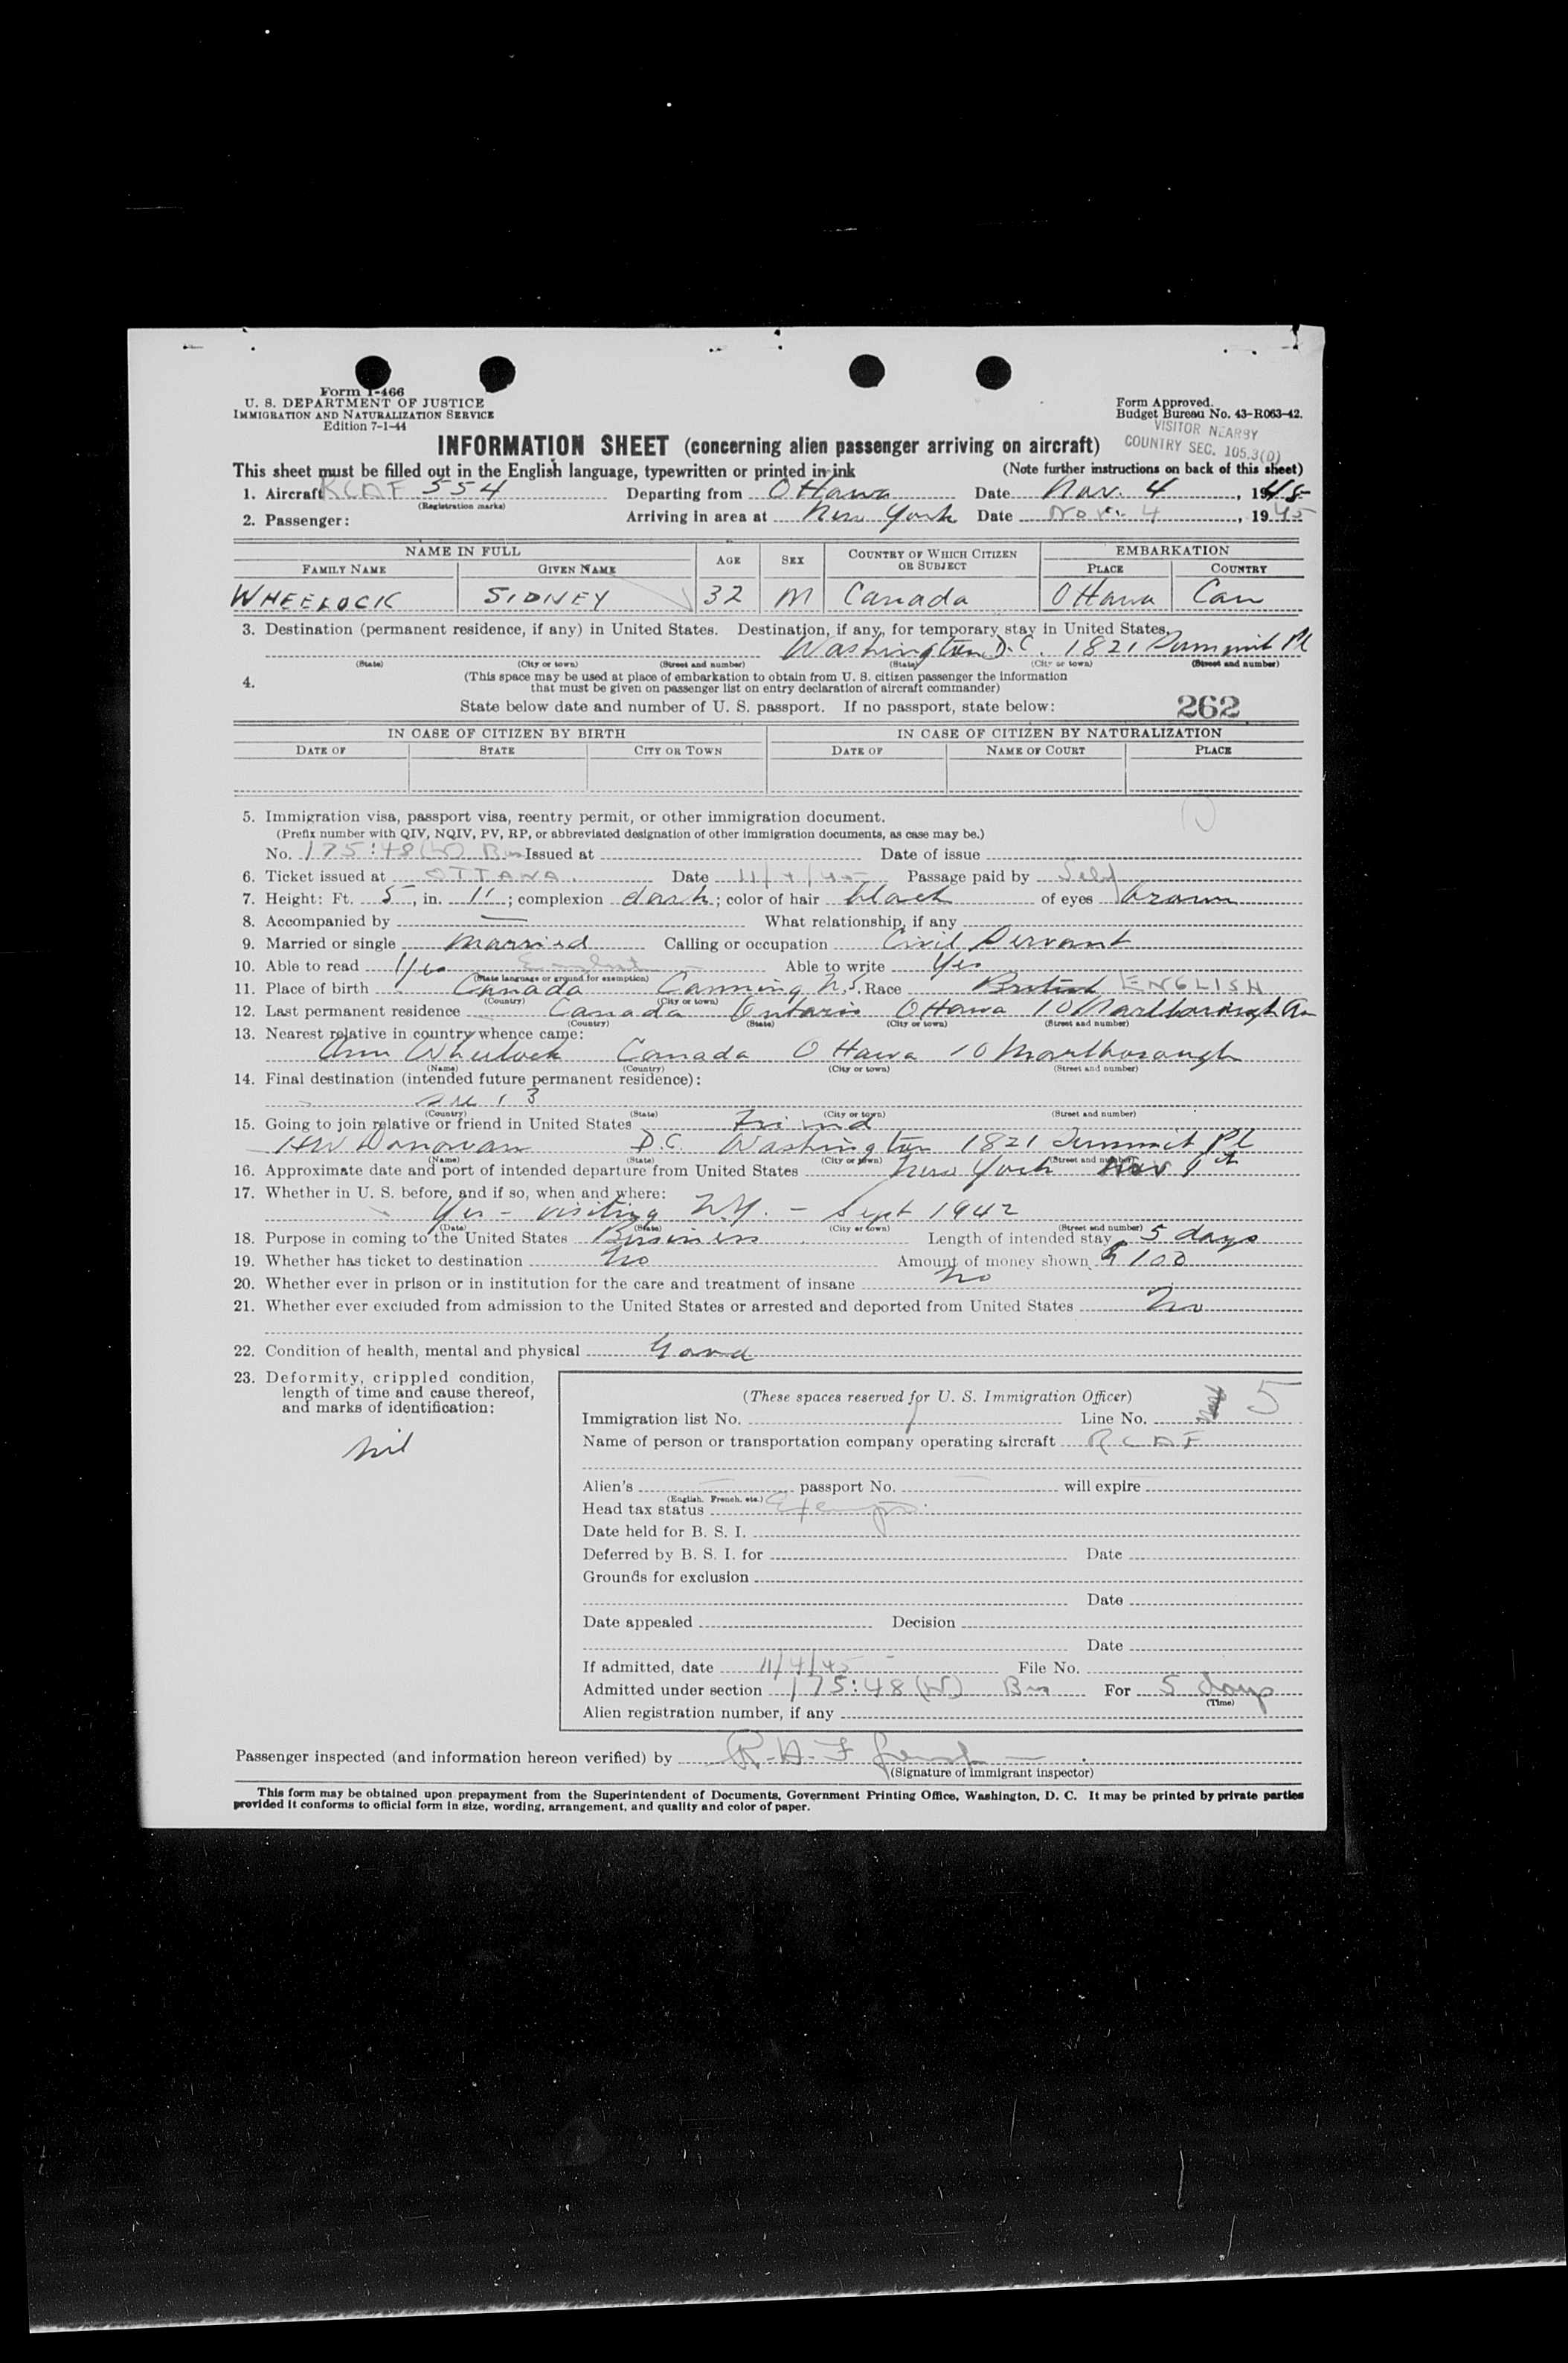 Form I-466
U. S. DEPARTMENT OF JUSTICE
IMMIGRATION AND NATURALIZATION SERVICE
Edition 7-1-44
Form Approved.
Budget Bureau No. 43-R063-42.
VISITOR NEARBY
COUNTRY SEC. 105.3(D)
INFORMATION SHEET (concerning alien passenger arriving on aircraft)
This sheet must be filled out in the English language, typewritten or printed in ink (Note further instructions on back of this sheet)
1. Aircraft RCAF 554 Departing from Ottawa Date Nov. 4, 1945
(Registration marks)
2. Passenger: Arriving in area at New York Date Nov. 4, 1945
NAME IN FULL AGE SEX COUNTRY OF WHICH CITIZEN OR SUBJECT EMBARKATION
FAMILY NAME GIVEN NAME PLACE COUNTRY
WHEELOCK SIDNEY 32 M Canada Ottawa Can
3. Destination (permanent residence, if any) in United States. Destination, if any, for temporary stay in United States.
Washington D.C. 1821 Summit Pl
(State) (City or town) (Street and number) (State) (City or town) (Street and number)
4. (This space may be used at place of embarkation to obtain from U. S. citizen passenger the information
that must be given on passenger list on entry declaration of aircraft commander)
State below date and number of U. S. passport. If no passport, state below: 262
IN CASE OF CITIZEN BY BIRTH IN CASE OF CITIZEN BY NATURALIZATION
DATE OF STATE CITY OR TOWN DATE OF NAME OF COURT PLACE
5. Immigration visa, passport visa, reentry permit, or other immigration document.
(Prefix number with QIV, NQIV, PV, RP, or abbreviated designation of other immigration documents, as case may be.)
No. 175:48(W) Bus Issued at Date of issue
6. Ticket issued at OTTAWA. Date 11/4/45 Passage paid by Self
7. Height: Ft. 5, in. 11; complexion dark; color of hair black of eyes brown
8. Accompanied by — What relationship, if any
9. Married or single Married Calling or occupation Civil Servant
10. Able to read Yes English Able to write Yes
(State language or ground for exemption)
11. Place of birth Canada Canning N.S. Race British ENGLISH
(Country) (City or town)
12. Last permanent residence Canada Ontario Ottawa 10 Marlborough Ave
(Country) (State) (City or town) (Street and number)
13. Nearest relative in country whence came:
Ann Wheelock Canada Ottawa 10 Marlborough
(Name) (Country) (City or town) (Street and number)
14. Final destination (intended future permanent residence):
(Country) (State) (City or town) (Street and number)
15. Going to join relative or friend in United States Friend
HW Donovan D.C. Washington 1821 Summit Pl
(Name) (State) (City or town) (Street and number)
16. Approximate date and port of intended departure from United States New York Nov
17. Whether in U. S. before, and if so, when and where:
Yes - visiting N.Y. - Sept 1942
(Date) (State) (City or town) (Street and number)
18. Purpose in coming to the United States Business Length of intended stay 5 days
19. Whether has ticket to destination No Amount of money shown $100
20. Whether ever in prison or in institution for the care and treatment of insane No
21. Whether ever excluded from admission to the United States or arrested and deported from United States No
22. Condition of health, mental and physical Good
23. Deformity, crippled condition,
length of time and cause thereof,
and marks of identification:
Nil
(These spaces reserved for U. S. Immigration Officer)
Immigration list No. Line No. 5
Name of person or transportation company operating aircraft RCAF
Alien's passport No. will expire
(English, French, etc.)
Head tax status Exempt
Date held for B. S. I.
Deferred by B. S. I. for Date
Grounds for exclusion
Date
Date appealed Decision
Date
If admitted, date 11/4/45 File No.
Admitted under section 175:48(W) Bus For 5 days
(Time)
Alien registration number, if any
Passenger inspected (and information hereon verified) by R. A. F.
(Signature of immigrant inspector)
This form may be obtained upon prepayment from the Superintendent of Documents, Government Printing Office, Washington, D. C. It may be printed by private parties
provided it conforms to official form in size, wording, arrangement, and quality and color of paper.